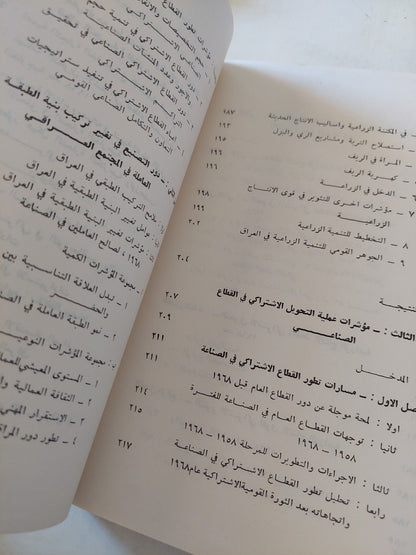 في المكننة الزراعية واساليب الانتاج الحديثة ١٨٧
استصلاح التربة ومشاريع الري والبزل ١٩٣
المرأة في الريف ١٩٥
كهربة الريف ١٩٦
٦ ـ الدخل في الزراعة ١٩٦
٧ ـ مؤشرات اخرى للتثوير في قوى الانتاج ١٩٨
الزراعية ١٩٩
٨ ـ التخطيط للتنمية الزراعية ٢٠٢
٩ ـ الجوهر القومي للتنمية الزراعية في العراق
٢٠٤
الثالث : ـ مؤشرات عملية التحويل الاشتراكي في القطاع ٢٠٧
الصناعي ٢٠٩
المدخل ٢١١
الاول : ـ مسارات تطور القطاع الاشتراكي في الصناعة ٢١١
اولا : لمحة موجلة عن دور القطاع العام قبل ١٩٦٨
ثانيا : توجهات القطاع العام في الصناعة للفترة ٢١٤
١٩٥٨ – ١٩٦٨ ٢١٥
ثالثا : الاجراءات والتطويرات للمرحلة ١٩٥٨ – ١٩٦٨
رابعا : تحليل تطور القطاع الاشتراكي في الصناعة ٢١٧
واتجاهاته بعد الثورة القومية الاشتراكية عام ١٩٦٨
مؤشرات تطور القطاع
الاشتراكي في تنمية حجم
وعدد المنشآت الصناعية
الاشتراكي في تنفيذ ستراتيجيات
القطاع الاشتراكي الصناعي في تحقيق
التعاون والتكامل الصناعي القومي
دور التصنيع في تغيير تركيب بنية الطبقة
العاملة في المجتمع العراقي
ملامح التركيب الطبقي في العراق
عوامل تغيير البنية الطبقية في العراق
مؤشرات تغيير البنية الطبقية في العراق
١٩٦٨ لصالح العاملين في الصناعة
مجموعة المؤشرات الكمية
١ ـ تبدل العلاقة التناسبية بين
والحضر
٢ ـ نمو الطبقة العاملة في
مجموعة المؤشرات النوعية
١ ـ المستوى المعيشي
٢ ـ الثقافة العمالية
٣ ـ الاستقرار المهني
٤ ـ تطور دور